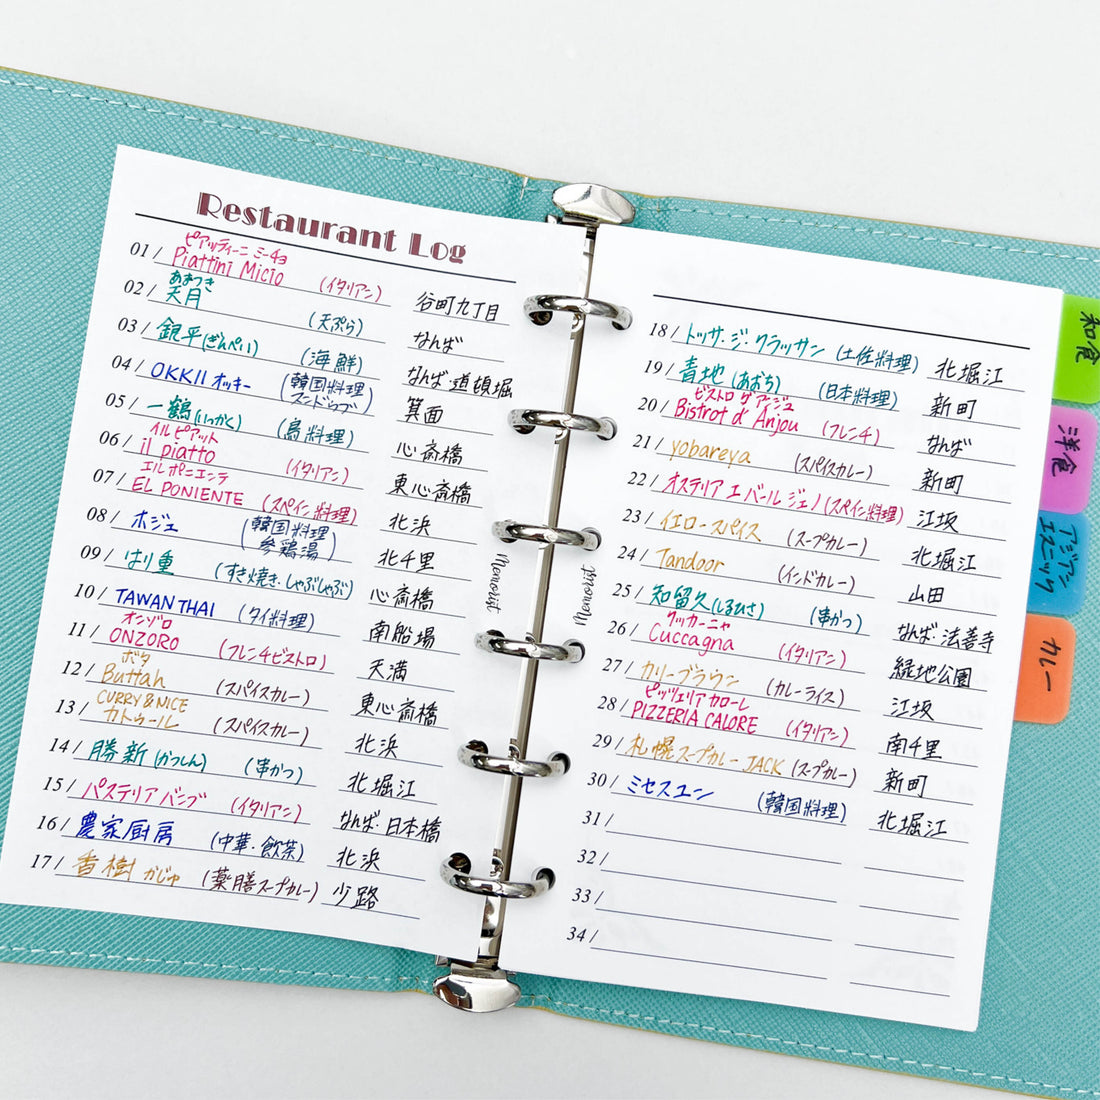 Restaurant Log
ピアッティーニ ミーチョ
01/ Piattini Micio (イタリアン) 谷町九丁目
あまつき
02/ 天月 (天ぷら) なんば
03/ 銀平(ぎんぺい) (海鮮) なんば 道頓堀
04/ OKKII オッキー (韓国料理 スンドゥブ) 箕面
05/ 一鶴(いっかく) (鳥料理) 心斎橋
イル ピアット
06/ il piatto (イタリアン) 東心斎橋
エル ポニエンテ
07/ EL PONIENTE (スペイン料理) 北浜
08/ ホジュ (韓国料理 参鶏湯) 北千里
09/ はり重 (すき焼き・しゃぶしゃぶ) 心斎橋
10/ TAWAN THAI (タイ料理) 南船場
オンゾロ
11/ ONZORO (フレンチビストロ) 天満
ボタ
12/ Buttah (スパイスカレー) 東心斎橋
CURRY&NICE
13/ カトゥール (スパイスカレー) 北浜
14/ 勝新(かつしん) (串かつ) 北堀江
15/ パステリア バンブ (イタリアン) なんば・日本橋
16/ 農家厨房 (中華・飲茶) 北浜
17/ 香樹 かじゅ (薬膳スープカレー) 少路
Memorist
Memorist
18/ トッサ・ジ・クラッサン (土佐料理) 北堀江
19/ 青地(あおち) (日本料理) 新町
ビストロ ダ アンジュ
20/ Bistrot d'Anjou (フレンチ) なんば
21/ yobareya (スパイスカレー) 新町
22/ オステリア エ バール ジェノ (スペイン料理) 江坂
23/ イエロースパイス (スープカレー) 北堀江
24/ Tandoor (インドカレー) 山田
25/ 知留久(しるひさ) (串かつ) なんば・法善寺
クッカーニャ
26/ Cuccagna (イタリアン) 緑地公園
27/ カリーブラウン (カレーライス) 江坂
ピッツェリア カローレ
28/ PIZZERIA CALORE (イタリアン) 南千里
29/ 札幌スープカレー JACK (スープカレー) 新町
30/ ミセスユン (韓国料理) 北堀江
31/
32/
33/
34/
和食
洋食
アジアン エスニック
カレー